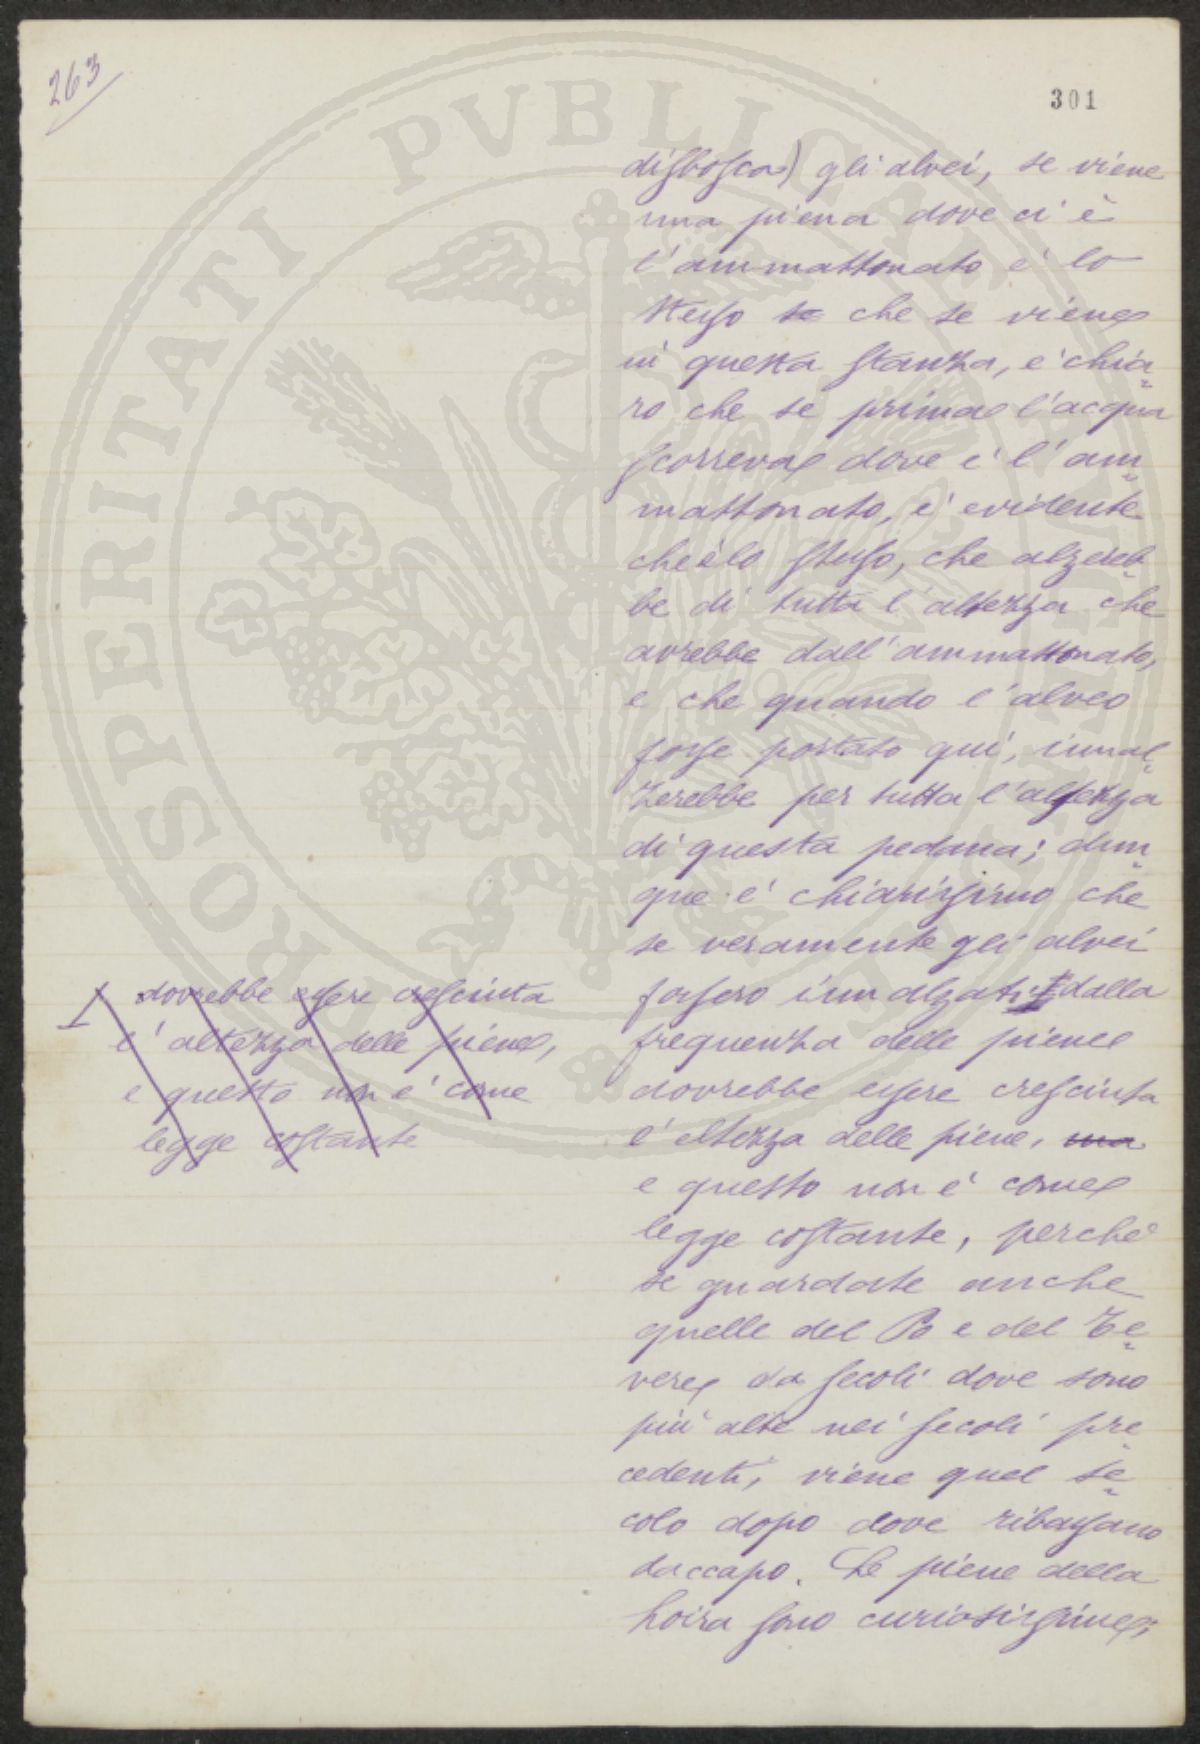 263
301
disbosca) gli alvei, se viene
una piena dove ci è
l'ammattonato è lo
stesso se che se viene
in questa stanza, è chia=
ro che se prima l'acqua
scorreva dove è l'am=
mattonato, è evidente
che è lo stesso, che alzereb=
be di tutta l'altezza che
avrebbe dall'ammattonato,
e che quando l'alveo
fosse portato qui, innal=
zerebbe per tutta l'altezza
di questa pedana; dun=
que è chiarissimo che
se veramente gli alvei
fossero innalzati dalla
frequenza delle piene
dovrebbe essere cresciuta
l'altezza delle piene, ma
e questo non è come
legge costante, perchè
se guardate anche
quelle del Po e del Te=
vere da secoli dove sono
più alte nei secoli pre=
cedenti, viene quel se=
colo dopo dove ribassano
daccapo. Le piene della
hoira sono curiosissime;
dovrebbe essere cresciuta
l'altezza delle piene,
e questo non è come
legge costante
PROSPERITATI PVBLICAE